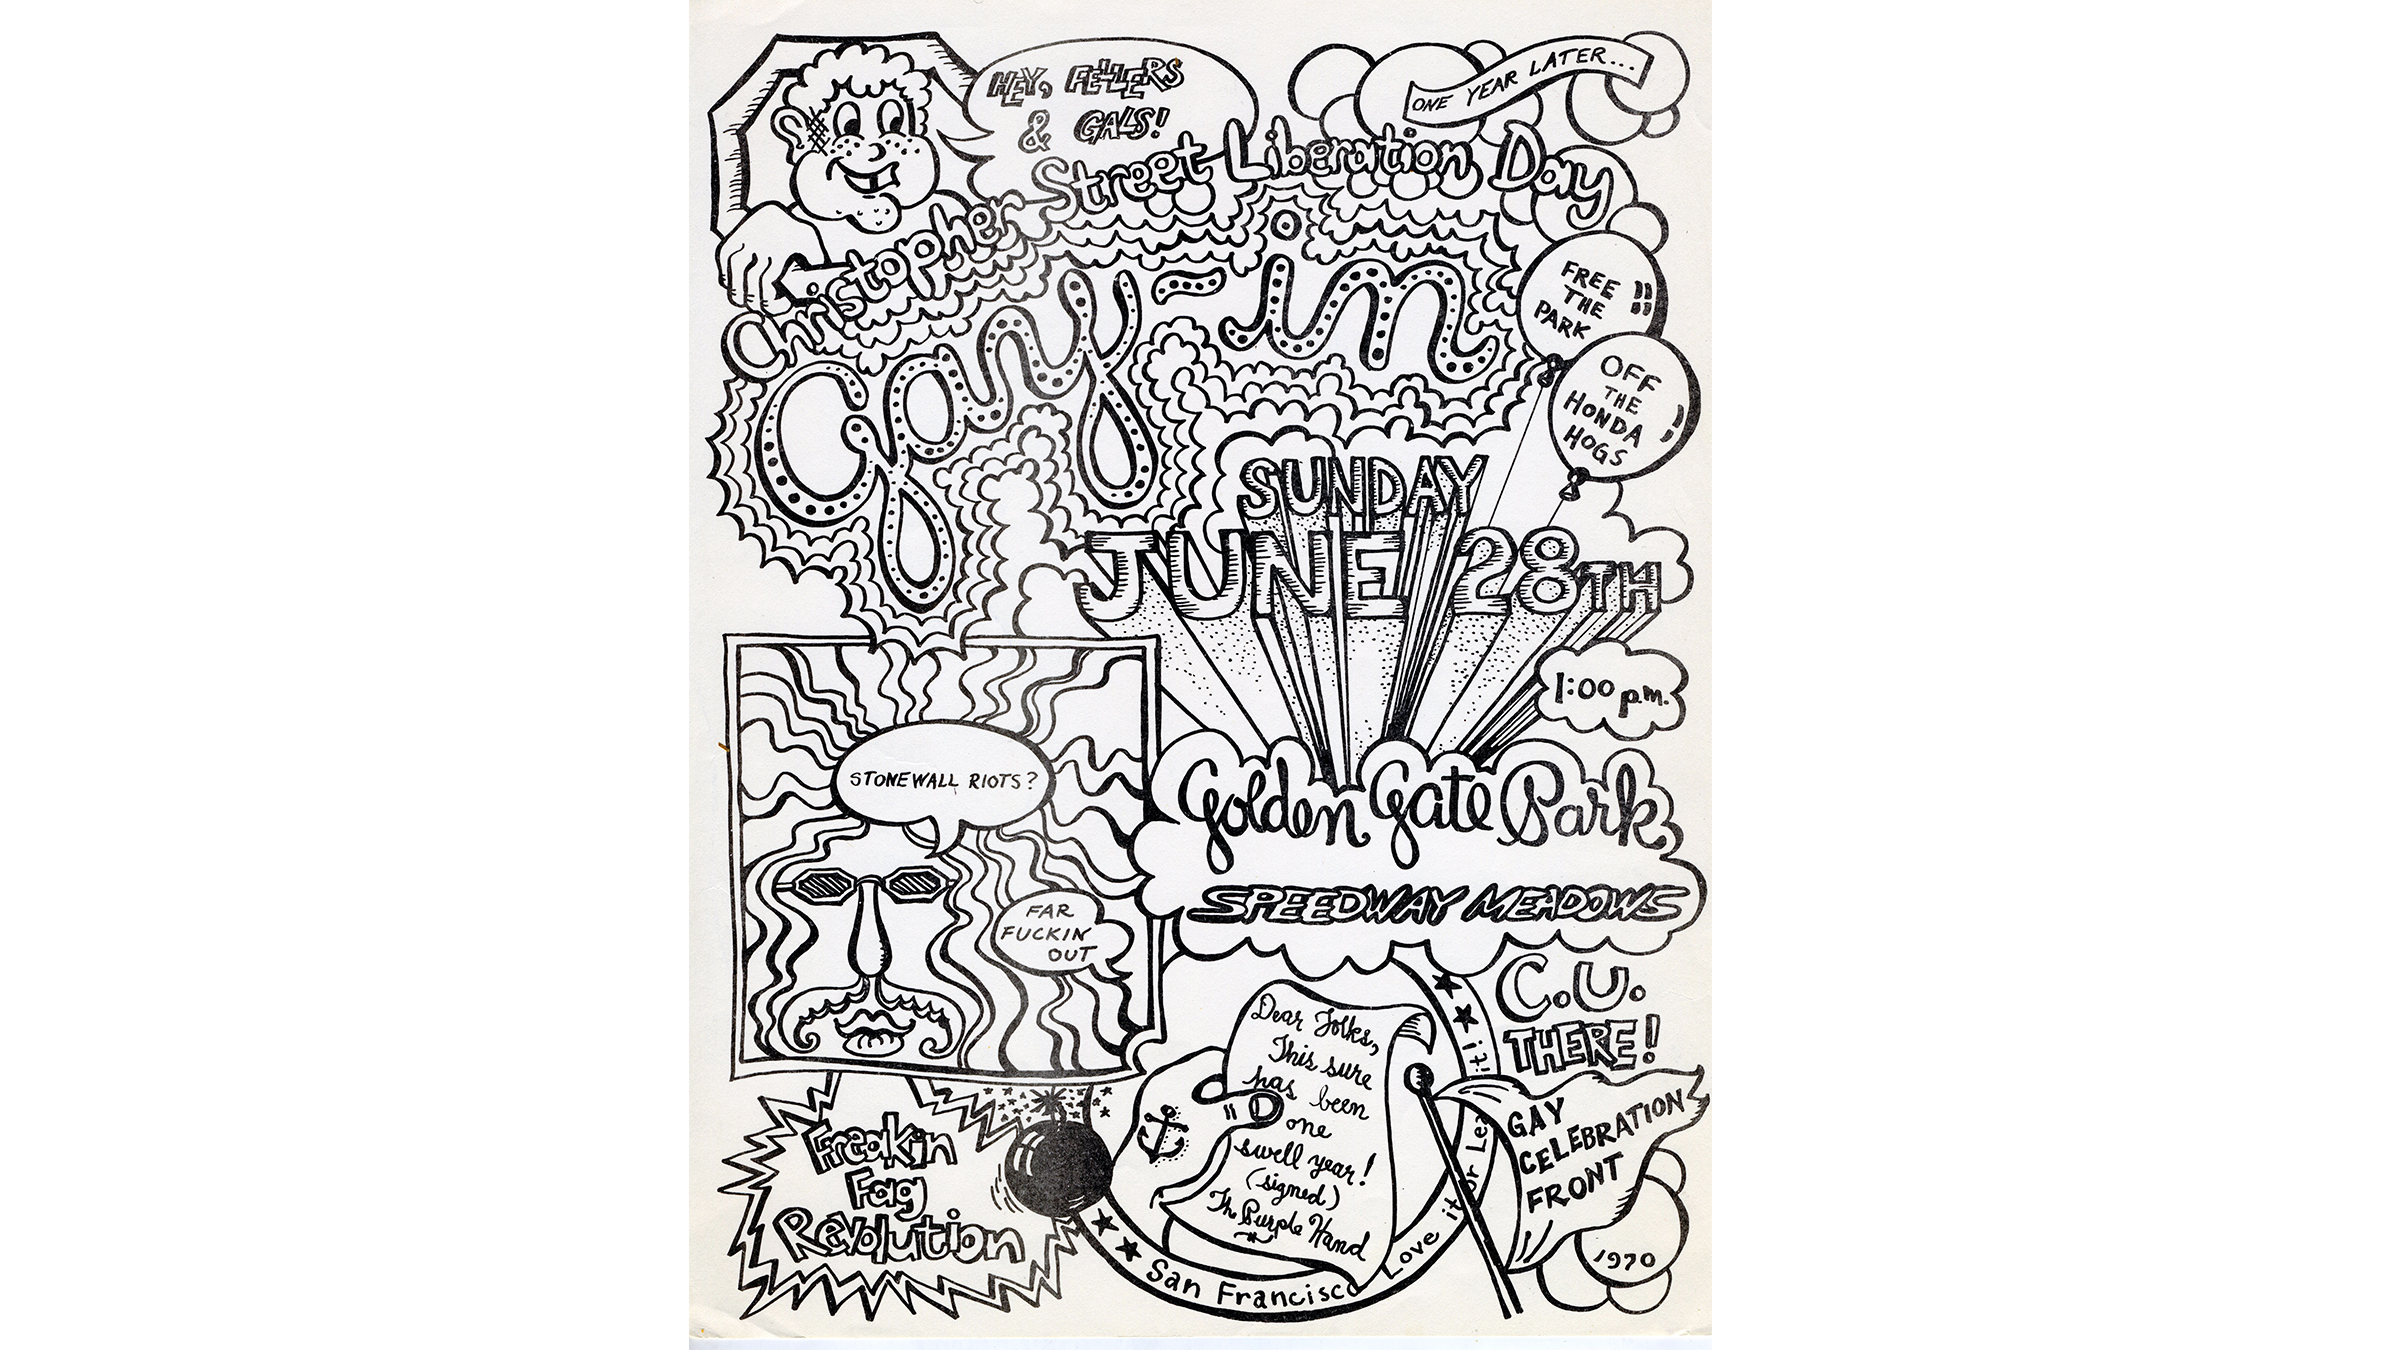 HEY, FELLERS
& GALS!
ONE YEAR LATER...
Christopher Street Liberation Day
Gay-in
FREE
THE
PARK
!!
OFF
THE
HONDA
HOGS
SUNDAY
JUNE 28TH
1:00 p.m.
Golden Gate Park
SPEEDWAY MEADOWS
STONEWALL RIOTS?
FAR
FUCKIN'
OUT
C.U.
THERE!
Dear Folks,
This sure
has been
one
swell year!
(signed)
The Purple Hand
GAY
CELEBRATION
FRONT
1970
Freakin
Fag
Revolution
San Francisco
Love it or Lea
it!